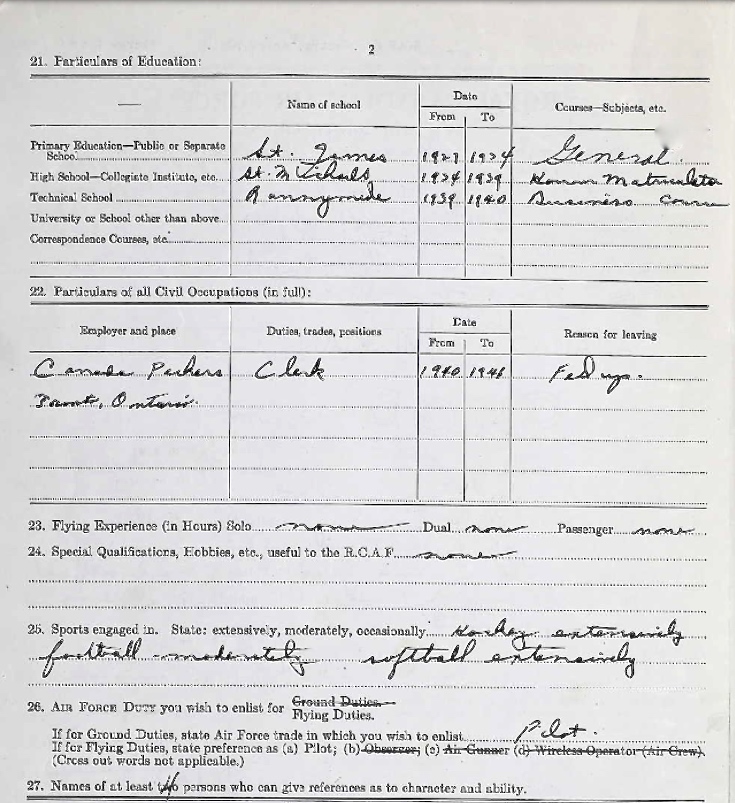 2
21. Particulars of Education:
Name of school Date Courses—Subjects, etc.
From To
Primary Education—Public or Separate
School St. James 1927 1934 General.
High School—Collegiate Institute, etc. St. Michaels 1934 1939 Honour Matriculation
Technical School Runnymede 1939 1940 Business Course
University or School other than above
Correspondence Courses, etc.
22. Particulars of all Civil Occupations (in full):
Employer and place Duties, trades, positions Date Reason for leaving
From To
Canada Packers Clerk 1940 Fed up.
Toronto, Ontario.
23. Flying Experience (in Hours) Solo none Dual none Passenger none
24. Special Qualifications, Hobbies, etc., useful to the R.C.A.F. none
25. Sports engaged in. State: extensively, moderately, occasionally Hockey extensively
football - moderately softball extensively
26. AIR FORCE DUTY you wish to enlist for Ground Duties.
Flying Duties.
If for Ground Duties, state Air Force trade in which you wish to enlist Pilot.
If for Flying Duties, state preference as (a) Pilot; (b) Observer; (c) Air Gunner (d) Wireless Operator (Air Crew).
(Cross out words not applicable.)
27. Names of at least two persons who can give references as to character and ability.